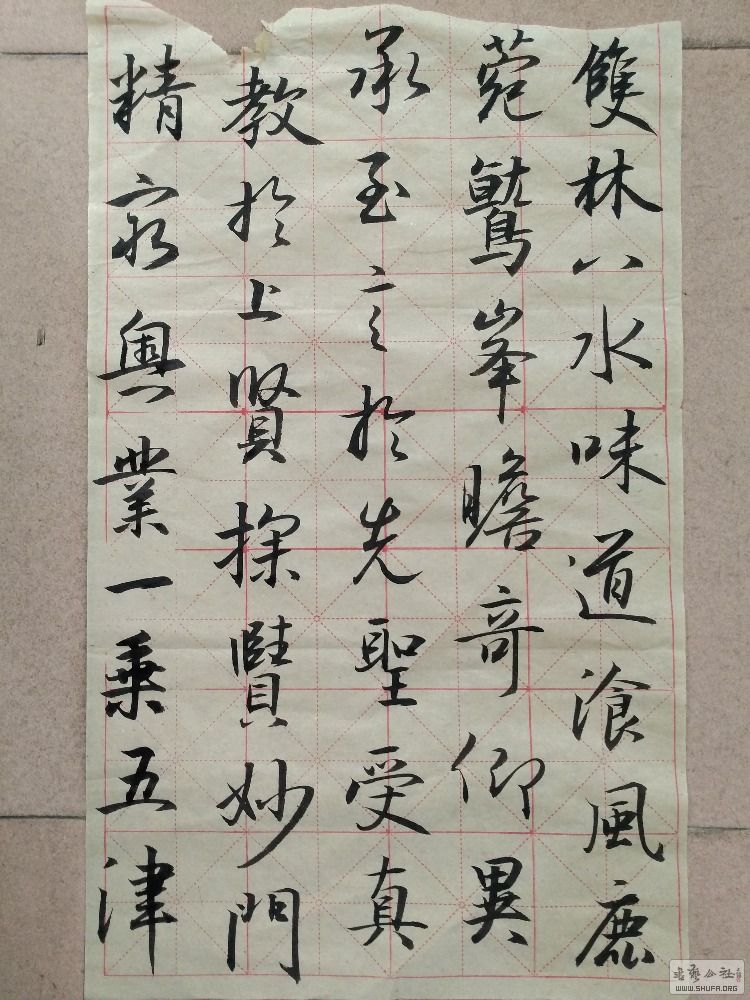 雙林八水味道飡風鹿
菀鷲峯瞻竒仰異
承至言於先聖受真
教於上賢探賾妙門
精窮奥業一乗五津
WWW.SHUFA.ORG